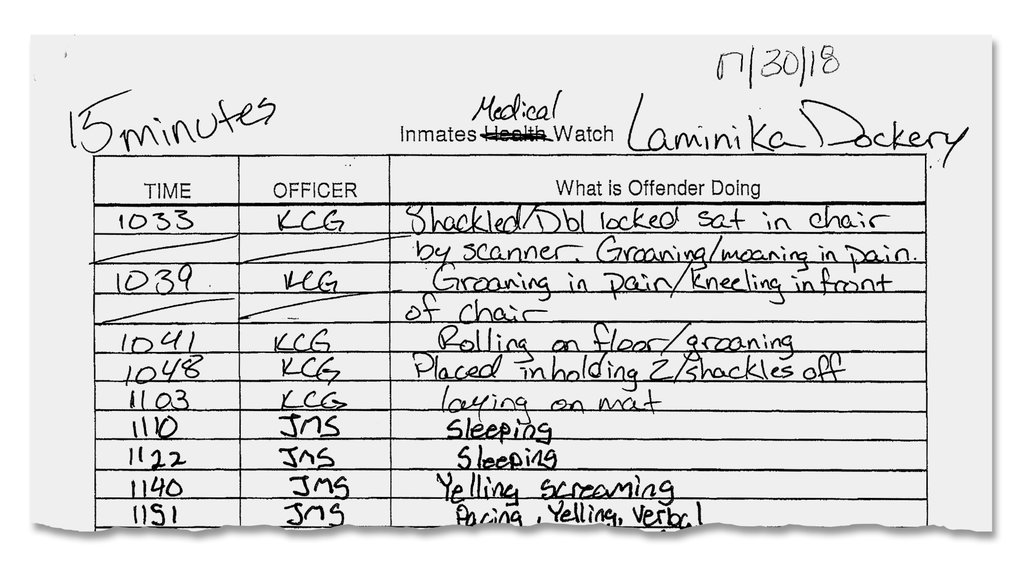 17/30/18
15 minutes
Medical
Inmates Health Watch Laminika Dockery
TIME OFFICER What is Offender Doing
1033 KCG Shackled/Dbl locked sat in chair
by scanner. Groaning/moaning in pain.
1039 KCG Groaning in pain/kneeling in front
of chair
1041 KCG Rolling on floor/groaning
1048 KCG Placed in holding 2/shackles off
1103 KCG laying on mat
1110 JMS Sleeping
1122 JMS Sleeping
1140 JMS Yelling screaming
1151 JMS Pacing, Yelling, Verbal